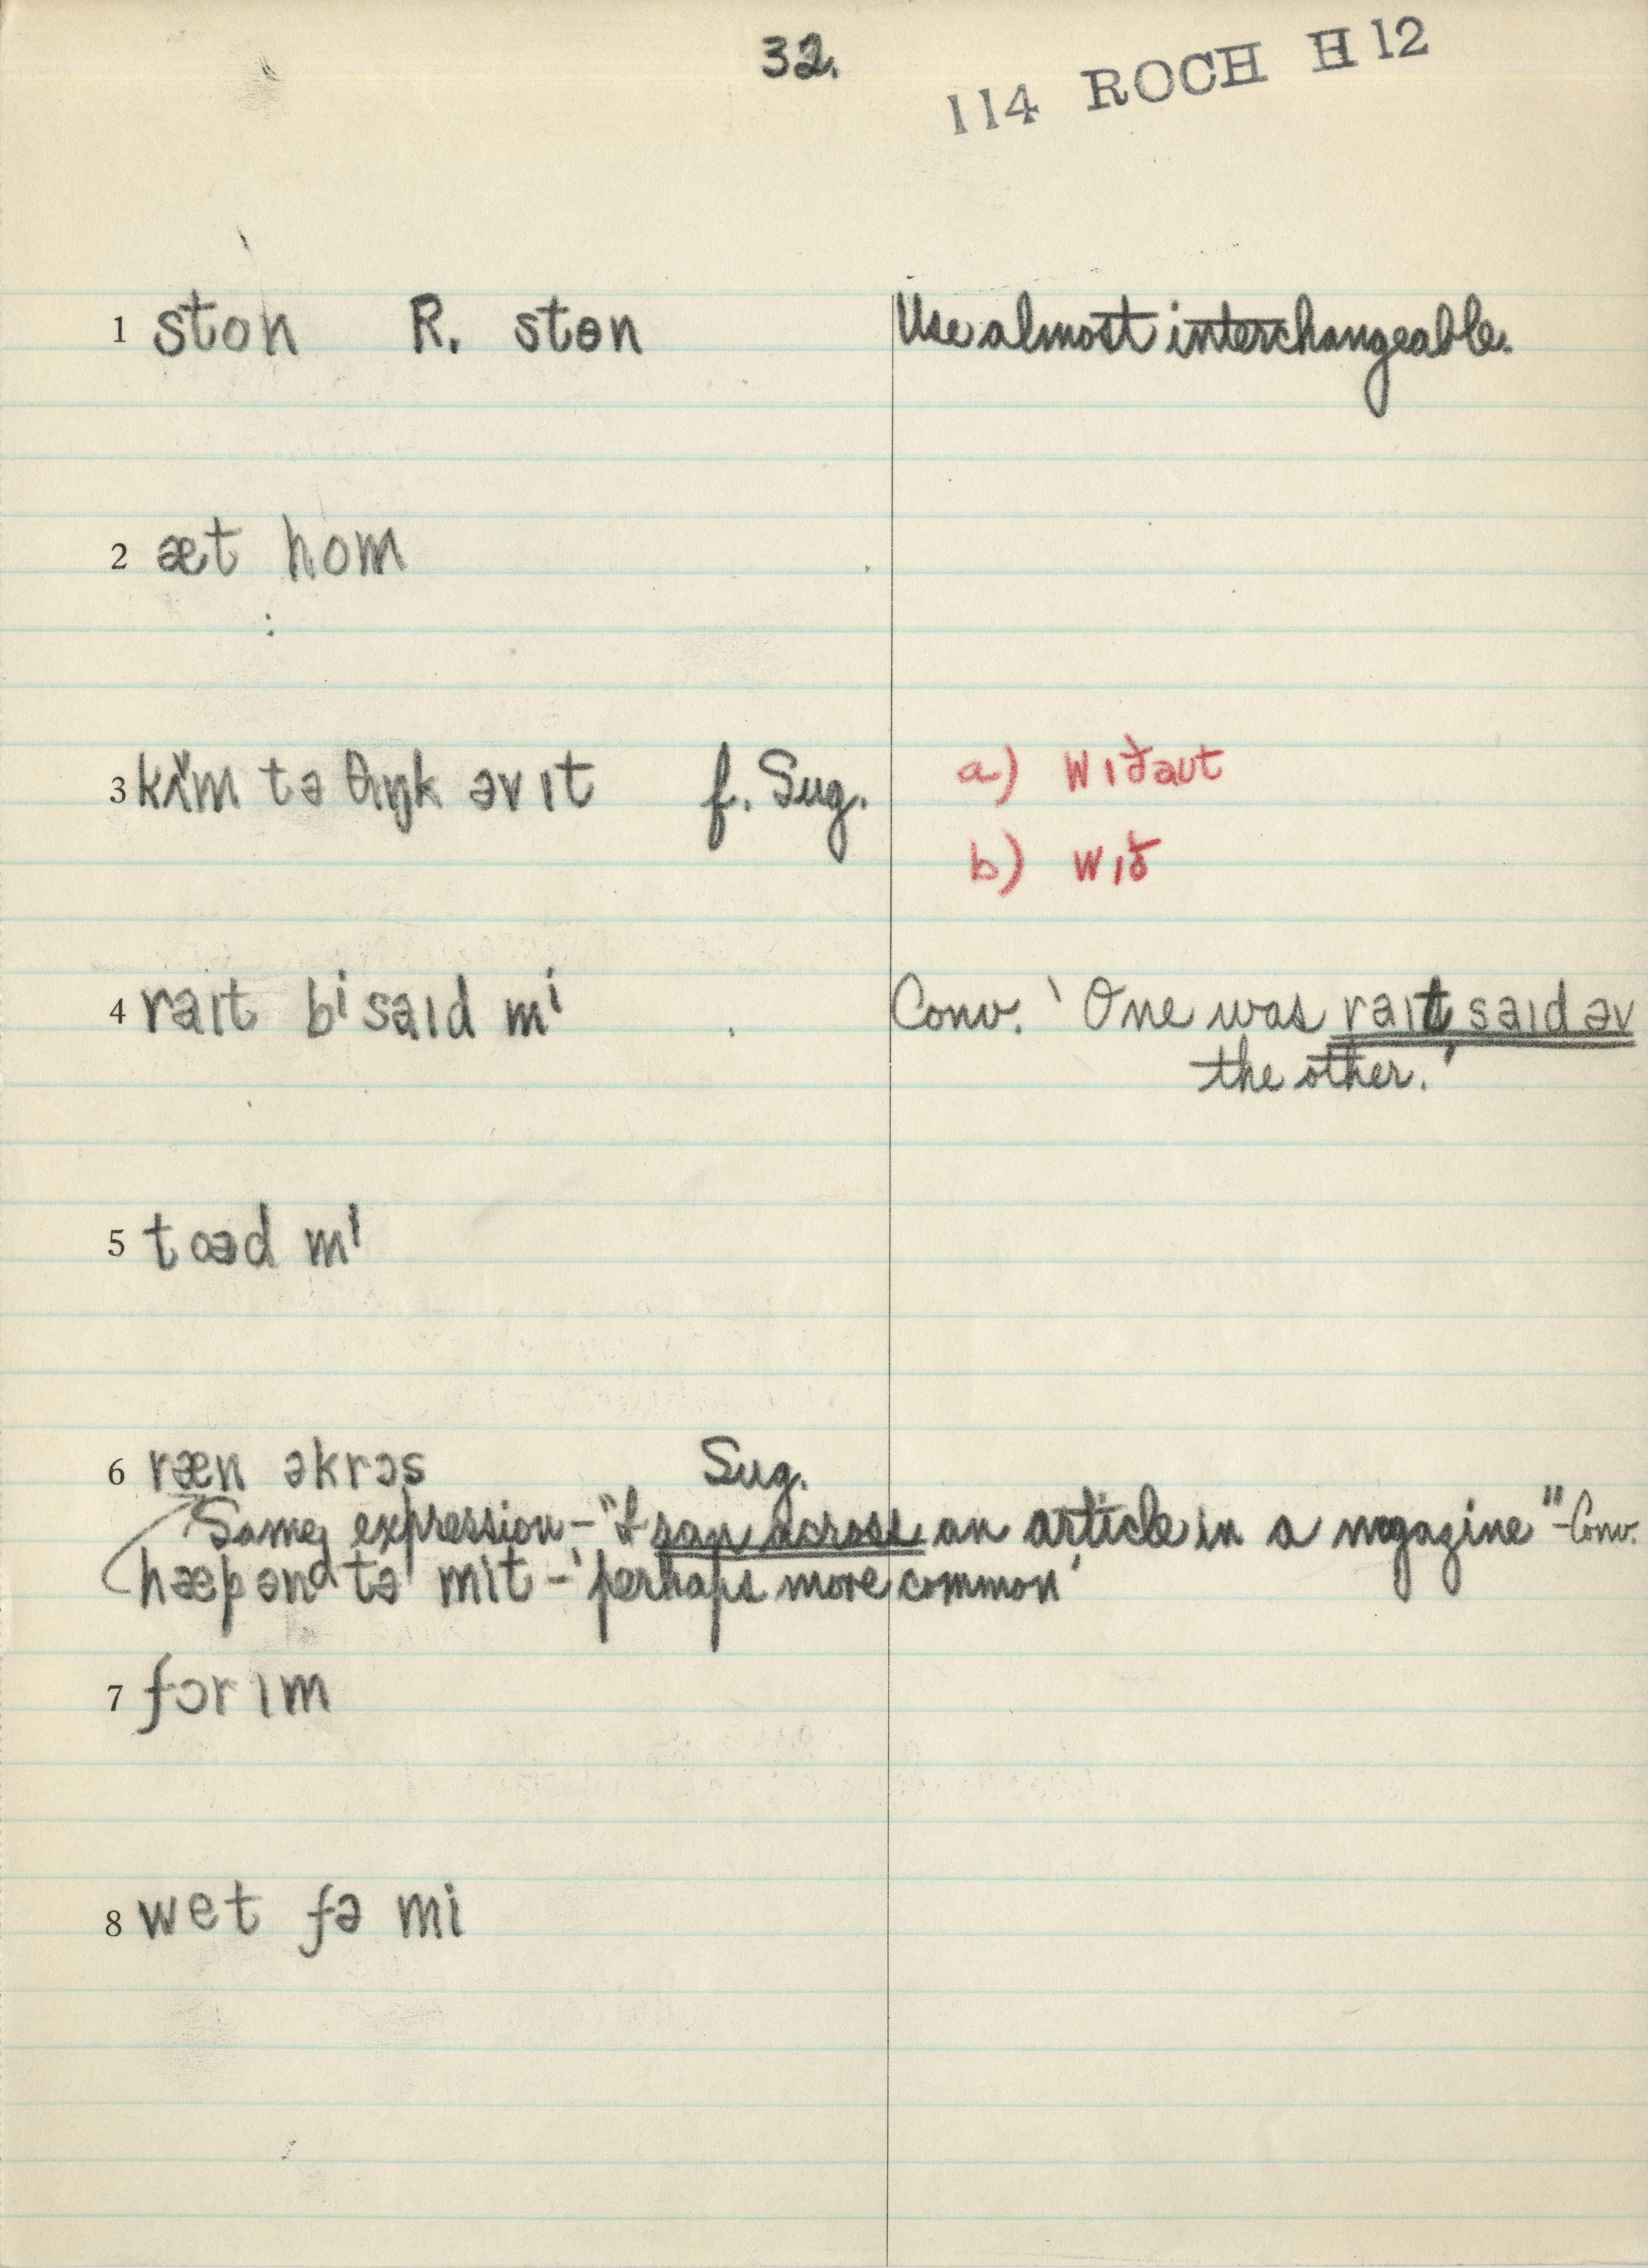 32.
114 ROCH H12
1 ston R. stɵn Use almost interchangeable.
2 æt hom
3 kɨ̆m tə θɪŋk əv ɪt f. Sug. a) wɪðaut
b) wɪð
4 raɪt bⁱsaɪd mⁱ Conv. 'One was raɪt saɪd əv
the other.'
5 toəd mⁱ
6 ræn əkrɔs Sug.
Same expression – "I ran across an article in a magazine" – Conv.
hæpənᵈ tə mit – 'perhaps more common'
7 fɔr ɪm
8 wet fə mi